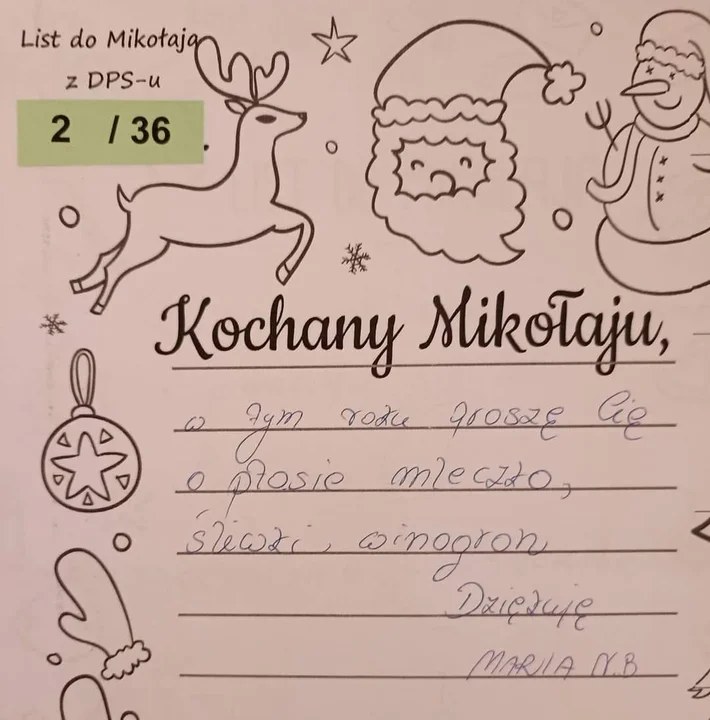 List do Mikołaja
z DPS-u
2 / 36
Kochany Mikołaju,
w tym roku proszę Cię
o ptasie mleczko,
śliwki, winogron
Dziękuję
MARIIA N.B